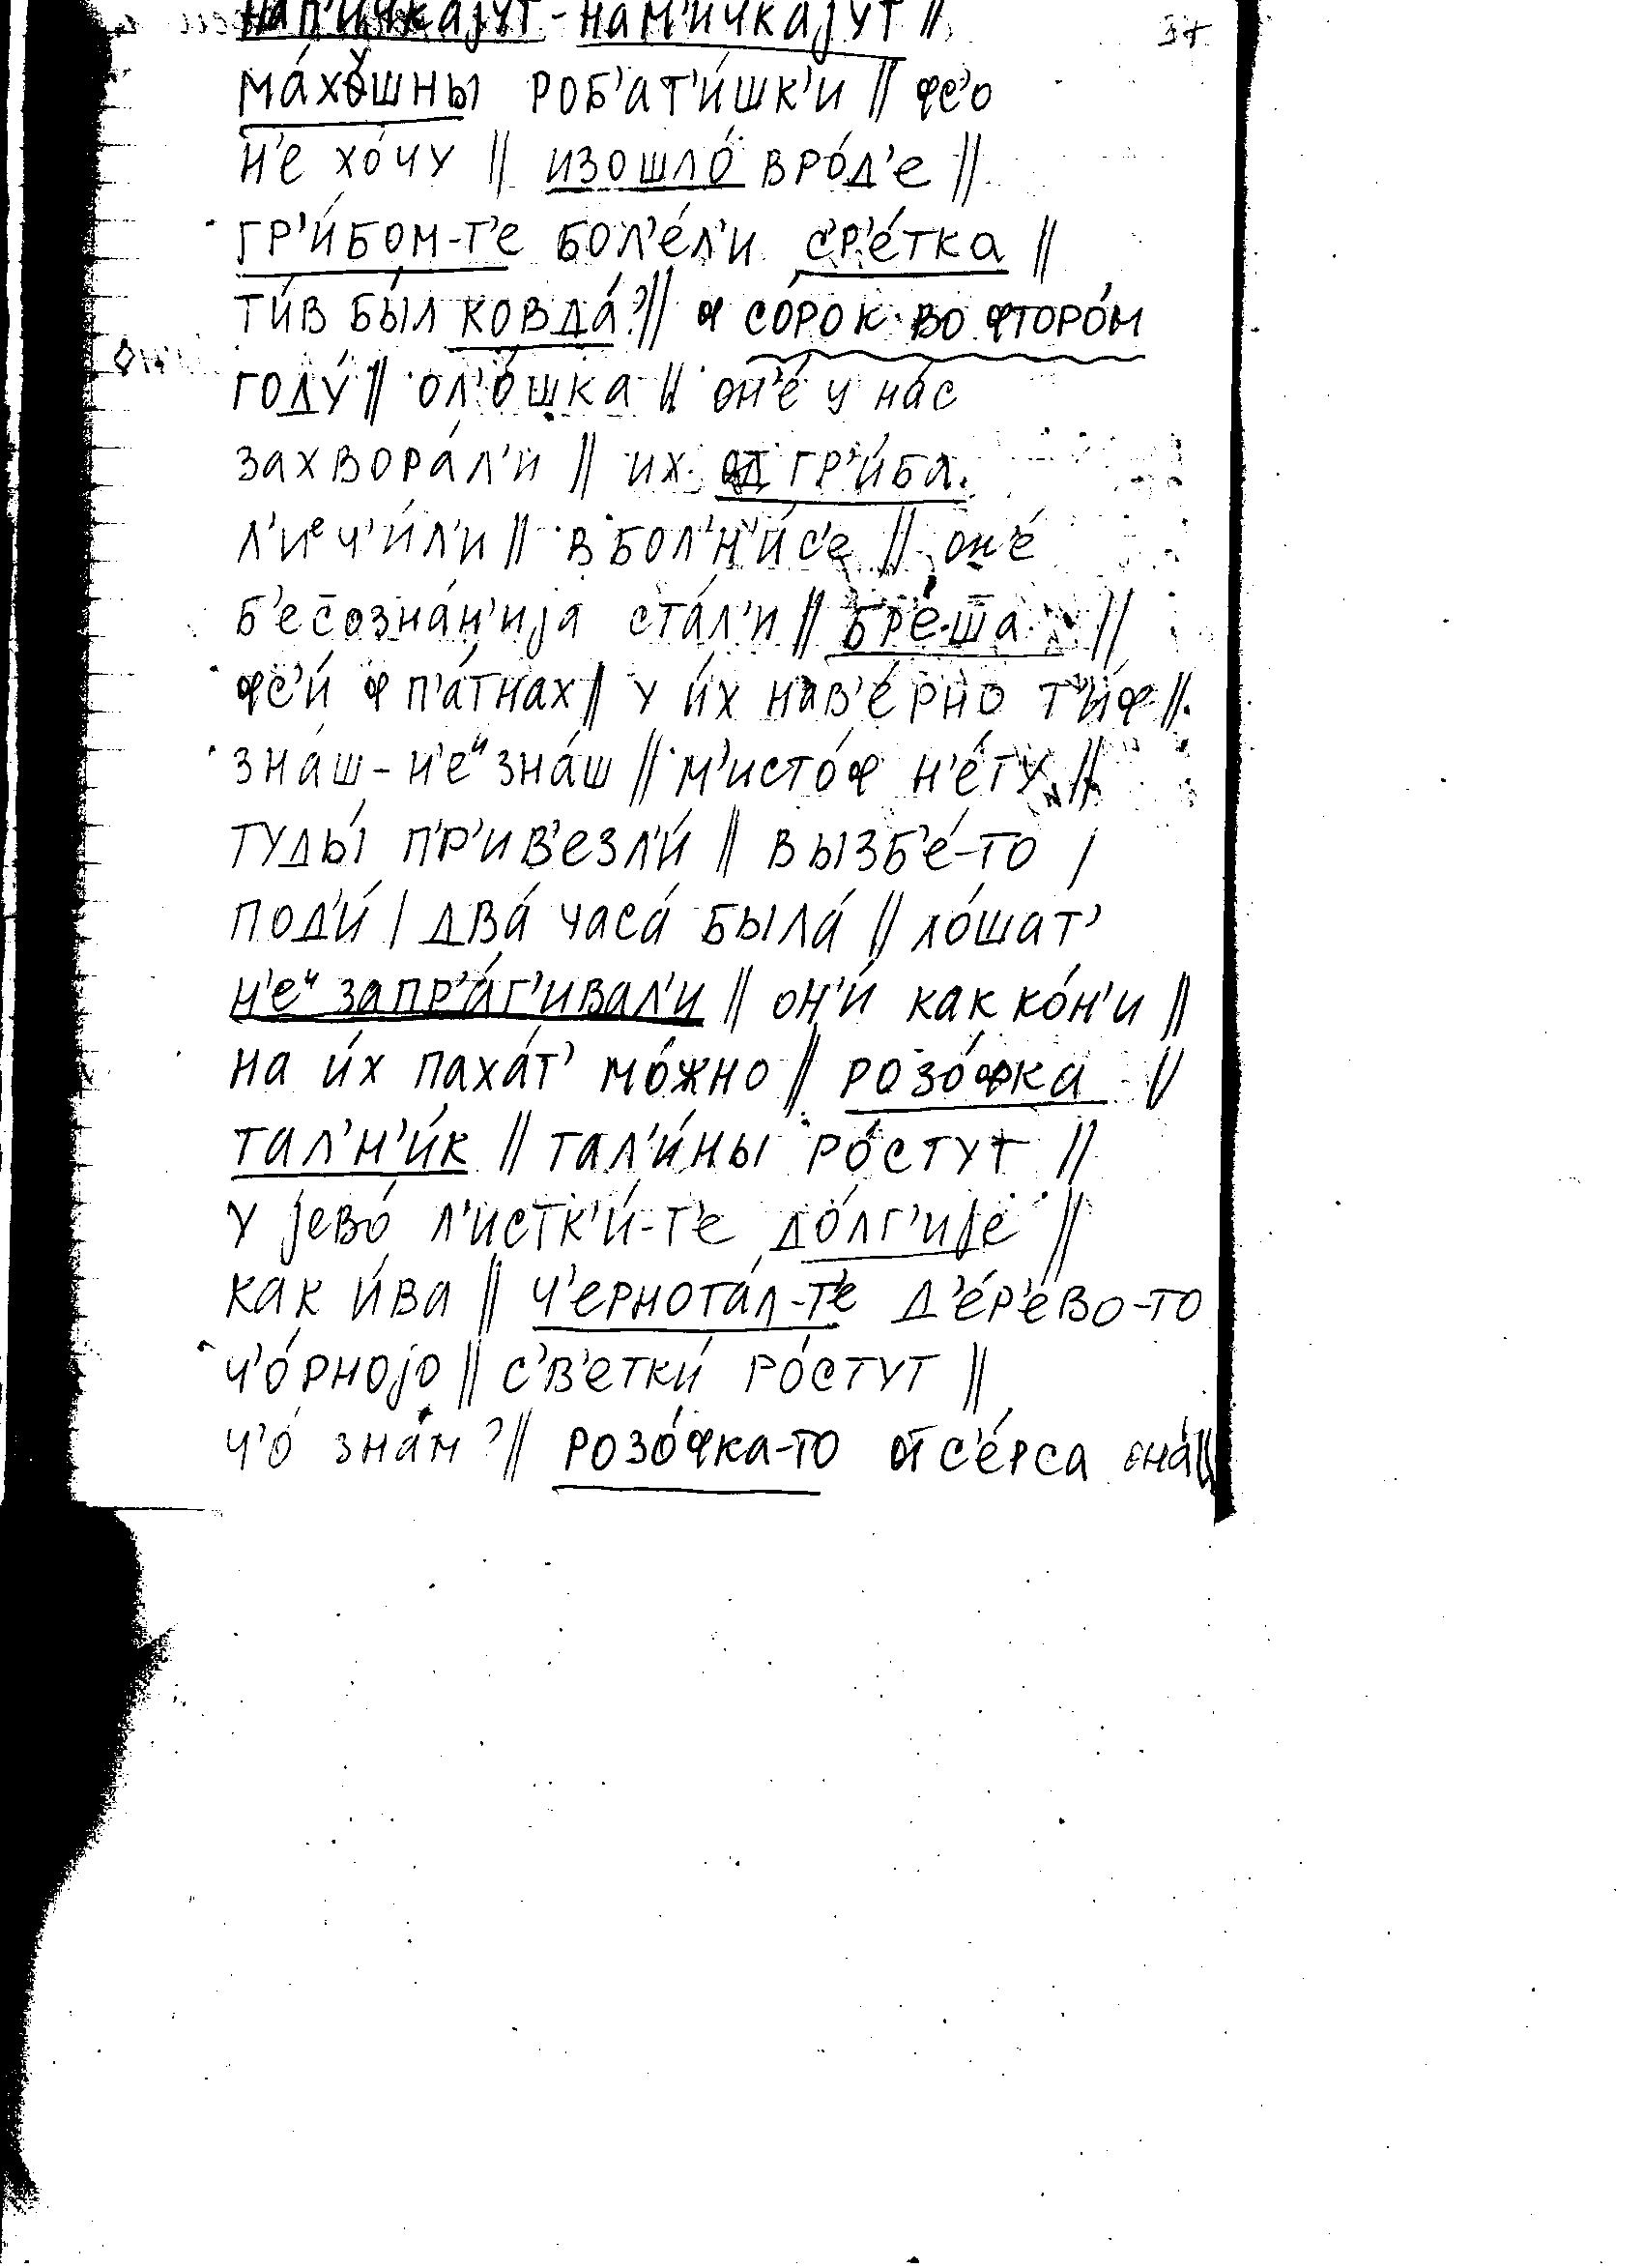 нап'ичкаjут-нам'ичкаjут ||
37
ма́хо̆шны роб'ат'и́шк'и || фс'о
н'е хо́чу || изошло́ вро́д'е ||
гр'и́бом-т'е бол'е́л'и ср'е́тка ||
ти́в бы́л ковда́? || ф со́рок во фторо́м
году́ || ол'о́шка || он'е́ у на́с
захвора́л'и || их од гр'и́ба
л'иᵉч'и́л'и || в бол'н'и́с'е || он'е́
б'есозна́н'иjа ста́л'и ||
фс'и́ ф п'а́тнах || у и́х нав'е́рно т'и́ф ||
зна́ш-н'еᶦзна́ш || м'исто́ф н'е́ту ||
туды́ пр'ив'езл'и́ || вызб'е́-то |
под'и́ | два́ часа́ была́ || ло́шат'
н'еᶦ запр'а́г'ивал'и || он'и́ как ко́н'и ||
на и́х паха́т' мо́жно || розо́фка ||
тал'н'и́к || тал'и́ны ро́стут ||
у jево́ л'истк'и́-т'е до́лг'иjе ||
как и́ва || ч'ернота́л-т'е д'е́р'ево-то
ч'о́рноjо || с'в'етки́ ро́стут ||
ч'о́ зна́м? || розо́фка-то от с'е́рса она́ ||